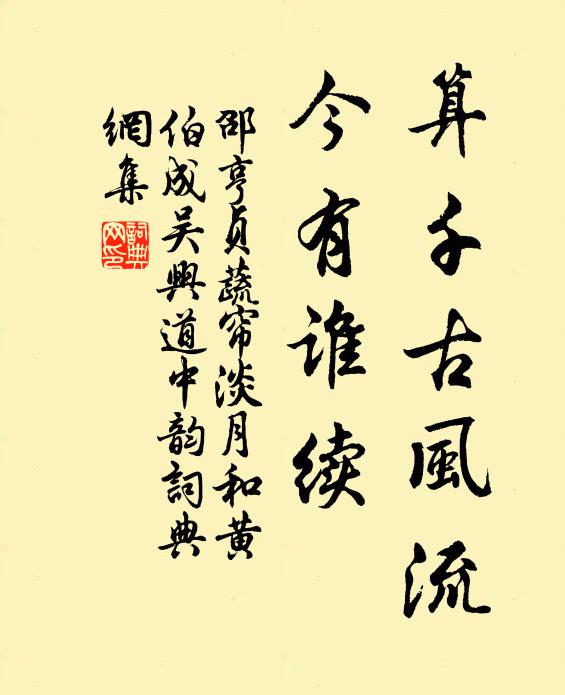 算千古風流
今有谁续
邵亨贞蔬帘淡月和黄
伯成吴興道中韵詞典
網集
詞典
网印